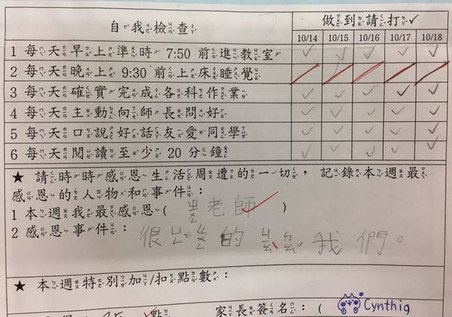 自我檢查 做到請打✓
10/14 10/15 10/16 10/17 10/18
1 每天早上準時 7:50 前進教室 ✓ ✓ ✓ ✓ ✓
2 每天晚上 9:30 前上床睡覺
3 每天確實完成各科作業 ✓ ✓ ✓ ✓ ✓
4 每天主動向師長問好 ✓ ✓ ✓ ✓ ✓
5 每天口說好話友愛同學 ✓ ✓ ✓ ✓ ✓
6 每天閱讀至少 20 分鐘 ✓ ✓ ✓ ✓ ✓
★ 請時時感恩生活周遭的一切，記錄本週最
感恩的人物和事件：
1 本週我最感恩(老師)
2 感恩事件：很ㄓㄠ的ㄓㄠ我們。
★ 本週特別加/扣點數：
點 家長簽名：( Cynthia